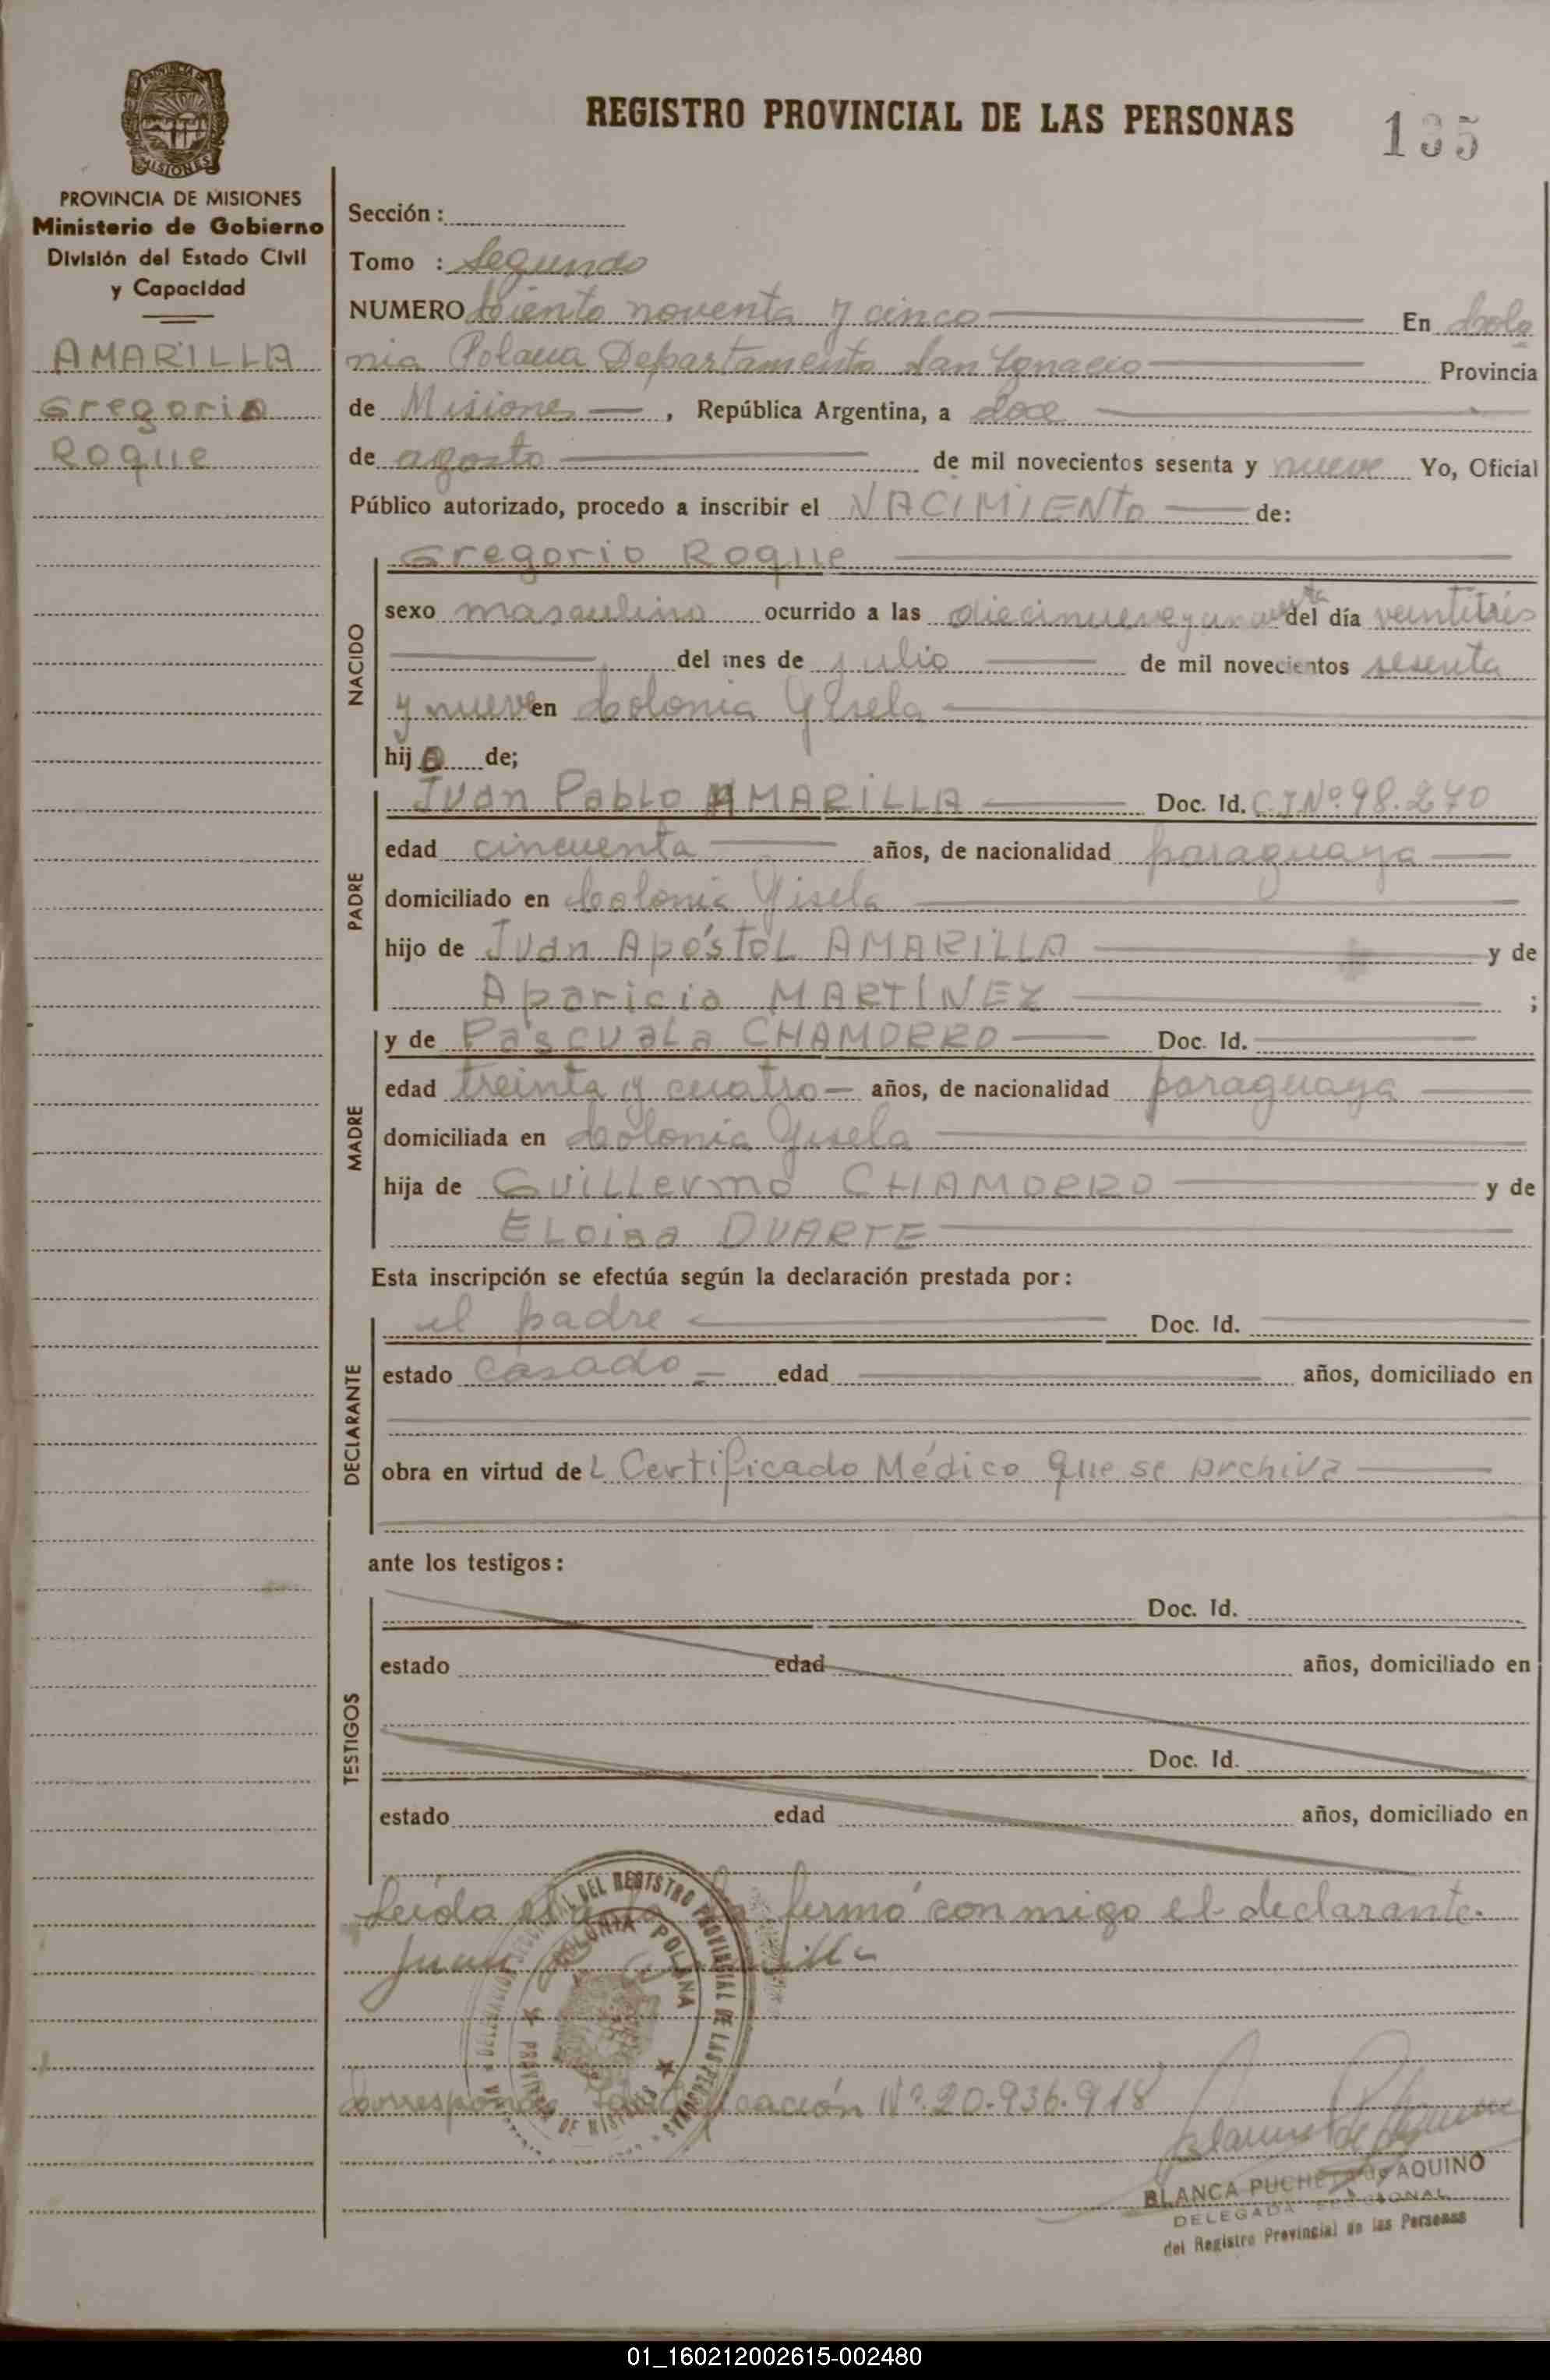 REGISTRO PROVINCIAL DE LAS PERSONAS
135
PROVINCIA DE MISIONES
Ministerio de Gobierno
División del Estado Civil
y Capacidad
AMARILLA
Gregorio
Roque
Sección :
Tomo : Segundo
NUMERO Ciento noventa y cinco En Colo
nia Polana Departamento San Ignacio Provincia
de Misiones , República Argentina, a doce
de agosto de mil novecientos sesenta y nueve Yo, Oficial
Público autorizado, procedo a inscribir el NACIMIENTO de:
NACIDO
Gregorio Roque
sexo masculino ocurrido a las diecinueve y del día veintitrés
del mes de julio de mil novecientos sesenta
y nueve en Colonia Gisela
hijo de;
PADRE
Juan Pablo AMARILLA Doc. Id. C.I.Nº 98.270
edad cincuenta años, de nacionalidad paraguaya
domiciliado en Colonia Gisela
hijo de Juan Apóstol AMARILLA y de
Aparicia MARTINEZ ;
MADRE
y de Pascuala CHAMORRO Doc. Id.
edad treinta y cuatro años, de nacionalidad paraguaya
domiciliada en Colonia Gisela
hija de Guillermo CHAMORRO y de
Eloisa DUARTE
Esta inscripción se efectúa según la declaración prestada por:
DECLARANTE
el padre Doc. Id.
estado casado edad años, domiciliado en
obra en virtud del Certificado Médico que se archiva
ante los testigos:
TESTIGOS
Doc. Id.
estado edad años, domiciliado en
Doc. Id.
estado edad años, domiciliado en
Leída el acta la firmó conmigo el declarante.
Juan
DEL REGISTRO PROVINCIAL DE LAS PERSONAS
COLONIA POLANA
PROVINCIA DE MISIONES
Corresponde Nº 20.936.918
BLANCA PUCHETA de AQUINO
DELEGADA SECCIONAL
del Registro Provincial de las Personas
01_160212002615-002480